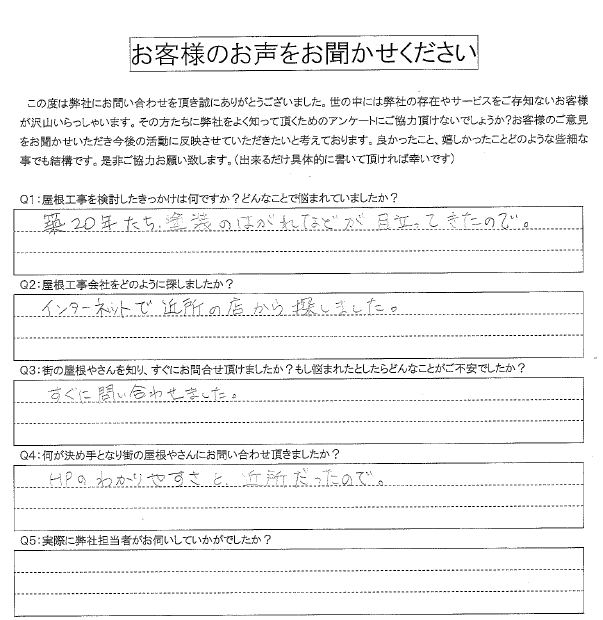 お客様のお声をお聞かせください
この度は弊社にお問い合わせを頂き誠にありがとうございました。世の中には弊社の存在やサービスをご存知ないお客様
が沢山いらっしゃいます。その方たちに弊社をよく知って頂くためのアンケートにご協力頂けないでしょうか?お客様のご意見
をお聞かせいただき今後の活動に反映させていただきたいと考えております。良かったこと、嬉しかったことどのような些細な
事でも結構です。是非ご協力お願い致します。(出来るだけ具体的に書いて頂ければ幸いです)
Q1:屋根工事を検討したきっかけは何ですか?どんなことで悩まれていましたか?
築20年たち、塗装のはがれなどが目立ってきたので。
Q2:屋根工事会社をどのように探しましたか?
インターネットで近所の店から探しました。
Q3:街の屋根やさんを知り、すぐにお問合せ頂けましたか?もし悩まれたとしたらどんなことがご不安でしたか?
すぐに問い合わせました。
Q4:何が決め手となり街の屋根やさんにお問い合わせ頂きましたか?
HPのわかりやすさと、近所だったので。
Q5:実際に弊社担当者がお伺いしていかがでしたか?